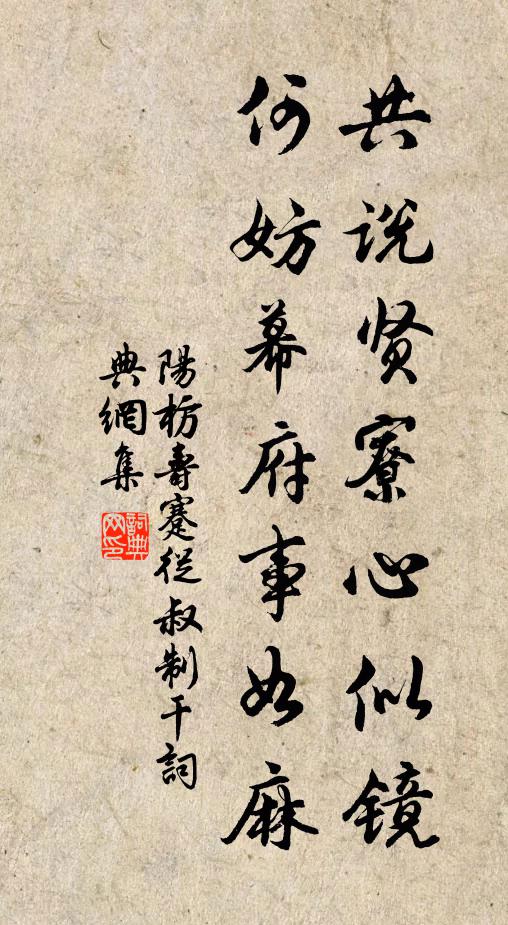 共说贤寮心似镜
何妨幕府事如麻
陽枋壽蹇從叔制干詞
典網集
詞典
网印